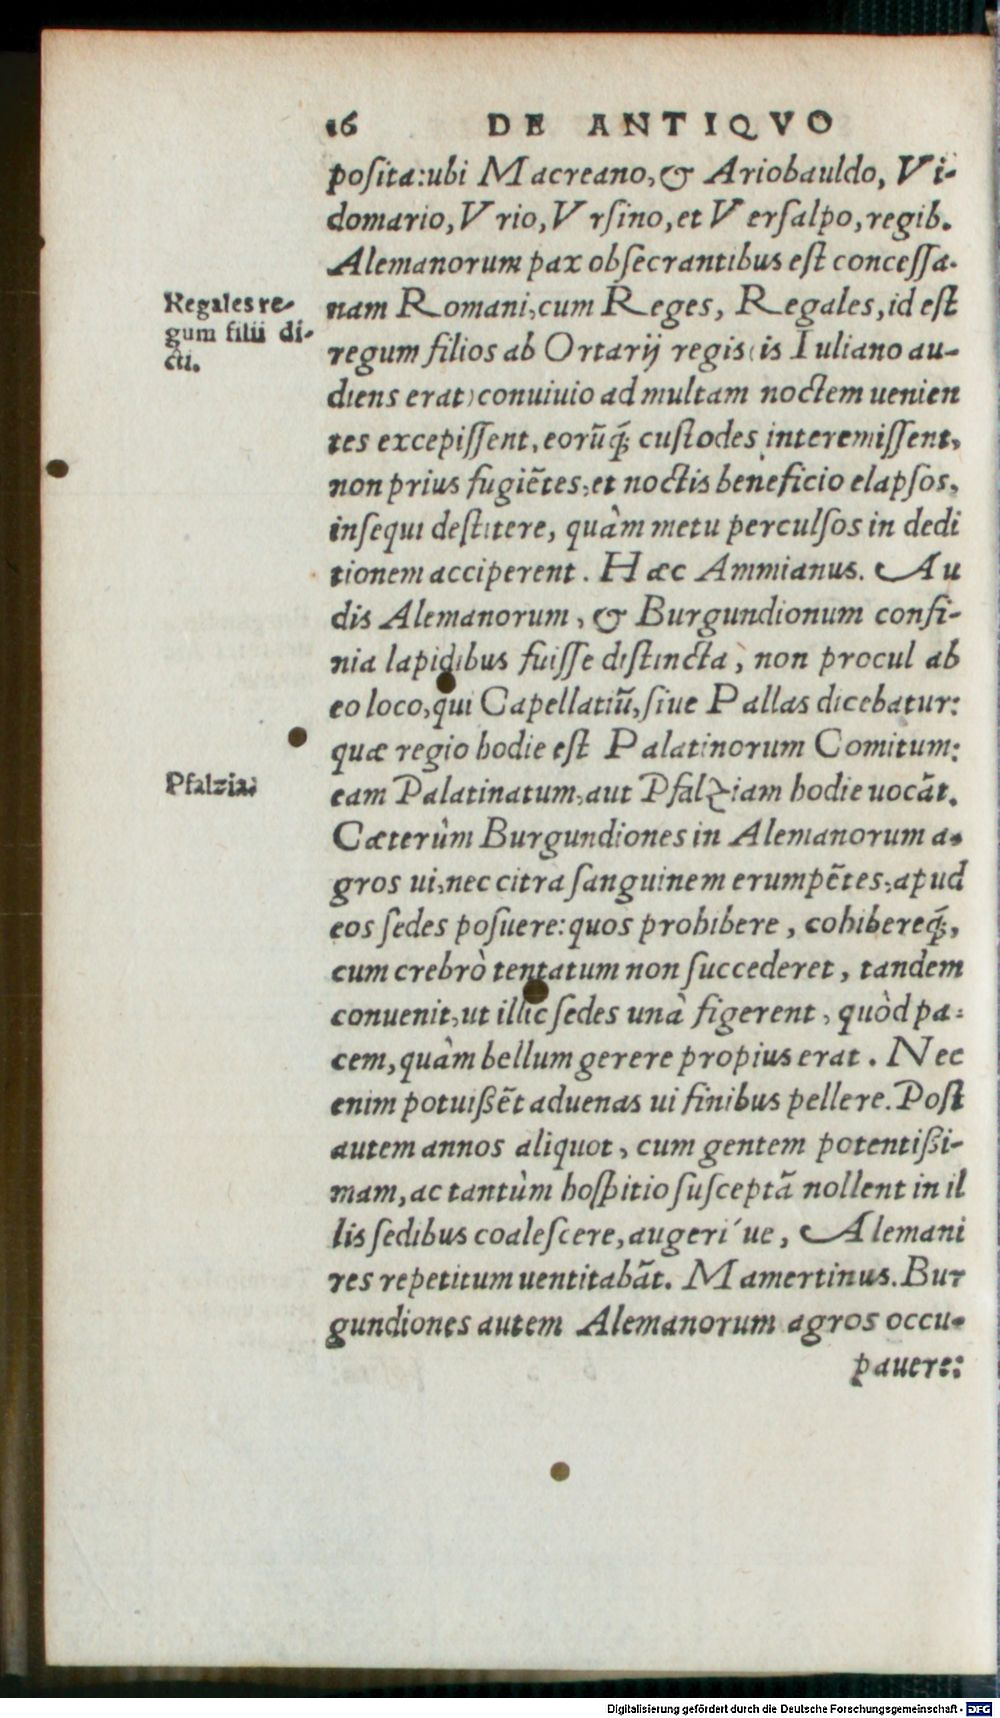 16 DE ANTIQVO
posita:ubi Macreano,& Ariobauldo, Vi-
domario, Vrio, Vrsino, et Versalpo, regib.
Alemanorum pax obsecrantibus est concessa.
Regales re-
gum filii di-
cti.
nam Romani, cum Reges, Regales, id est
regum filios ab Ortarij regis (is Iuliano au-
diens erat) conuiuio ad multam noctem uenien
tes excepissent, eorūq́; custodes interemissent,
non prius fugiētes, et noctis beneficio elapsos,
insequi destitere, quàm metu perculsos in dedi
tionem acciperent. Hæc Ammianus. Au
dis Alemanorum, & Burgundionum confi-
nia lapidibus fuisse distincta, non procul ab
eo loco, qui Capellatiū, siue Pallas dicebatur:
quæ regio hodie est Palatinorum Comitum:
Pfalzia.
eam Palatinatum, aut Pfalziam hodie uocāt.
Cæterùm Burgundiones in Alemanorum a-
gros ui, nec citra sanguinem erumpētes, apud
eos sedes posuere: quos prohibere, cohibereq́;,
cum crebrò tentatum non succederet, tandem
conuenit, ut illic sedes unà figerent, quòd pa-
cem, quàm bellum gerere propius erat. Nec
enim potuißēt aduenas ui finibus pellere. Post
autem annos aliquot, cum gentem potentißi-
mam, ac tantùm hospitio susceptā nollent in il
lis sedibus coalescere, augeri´ue, Alemani
res repetitum uentitabāt. Mamertinus. Bur
gundiones autem Alemanorum agros occu-
pauere:
Digitalisierung gefördert durch die Deutsche Forschungsgemeinschaft - DFG